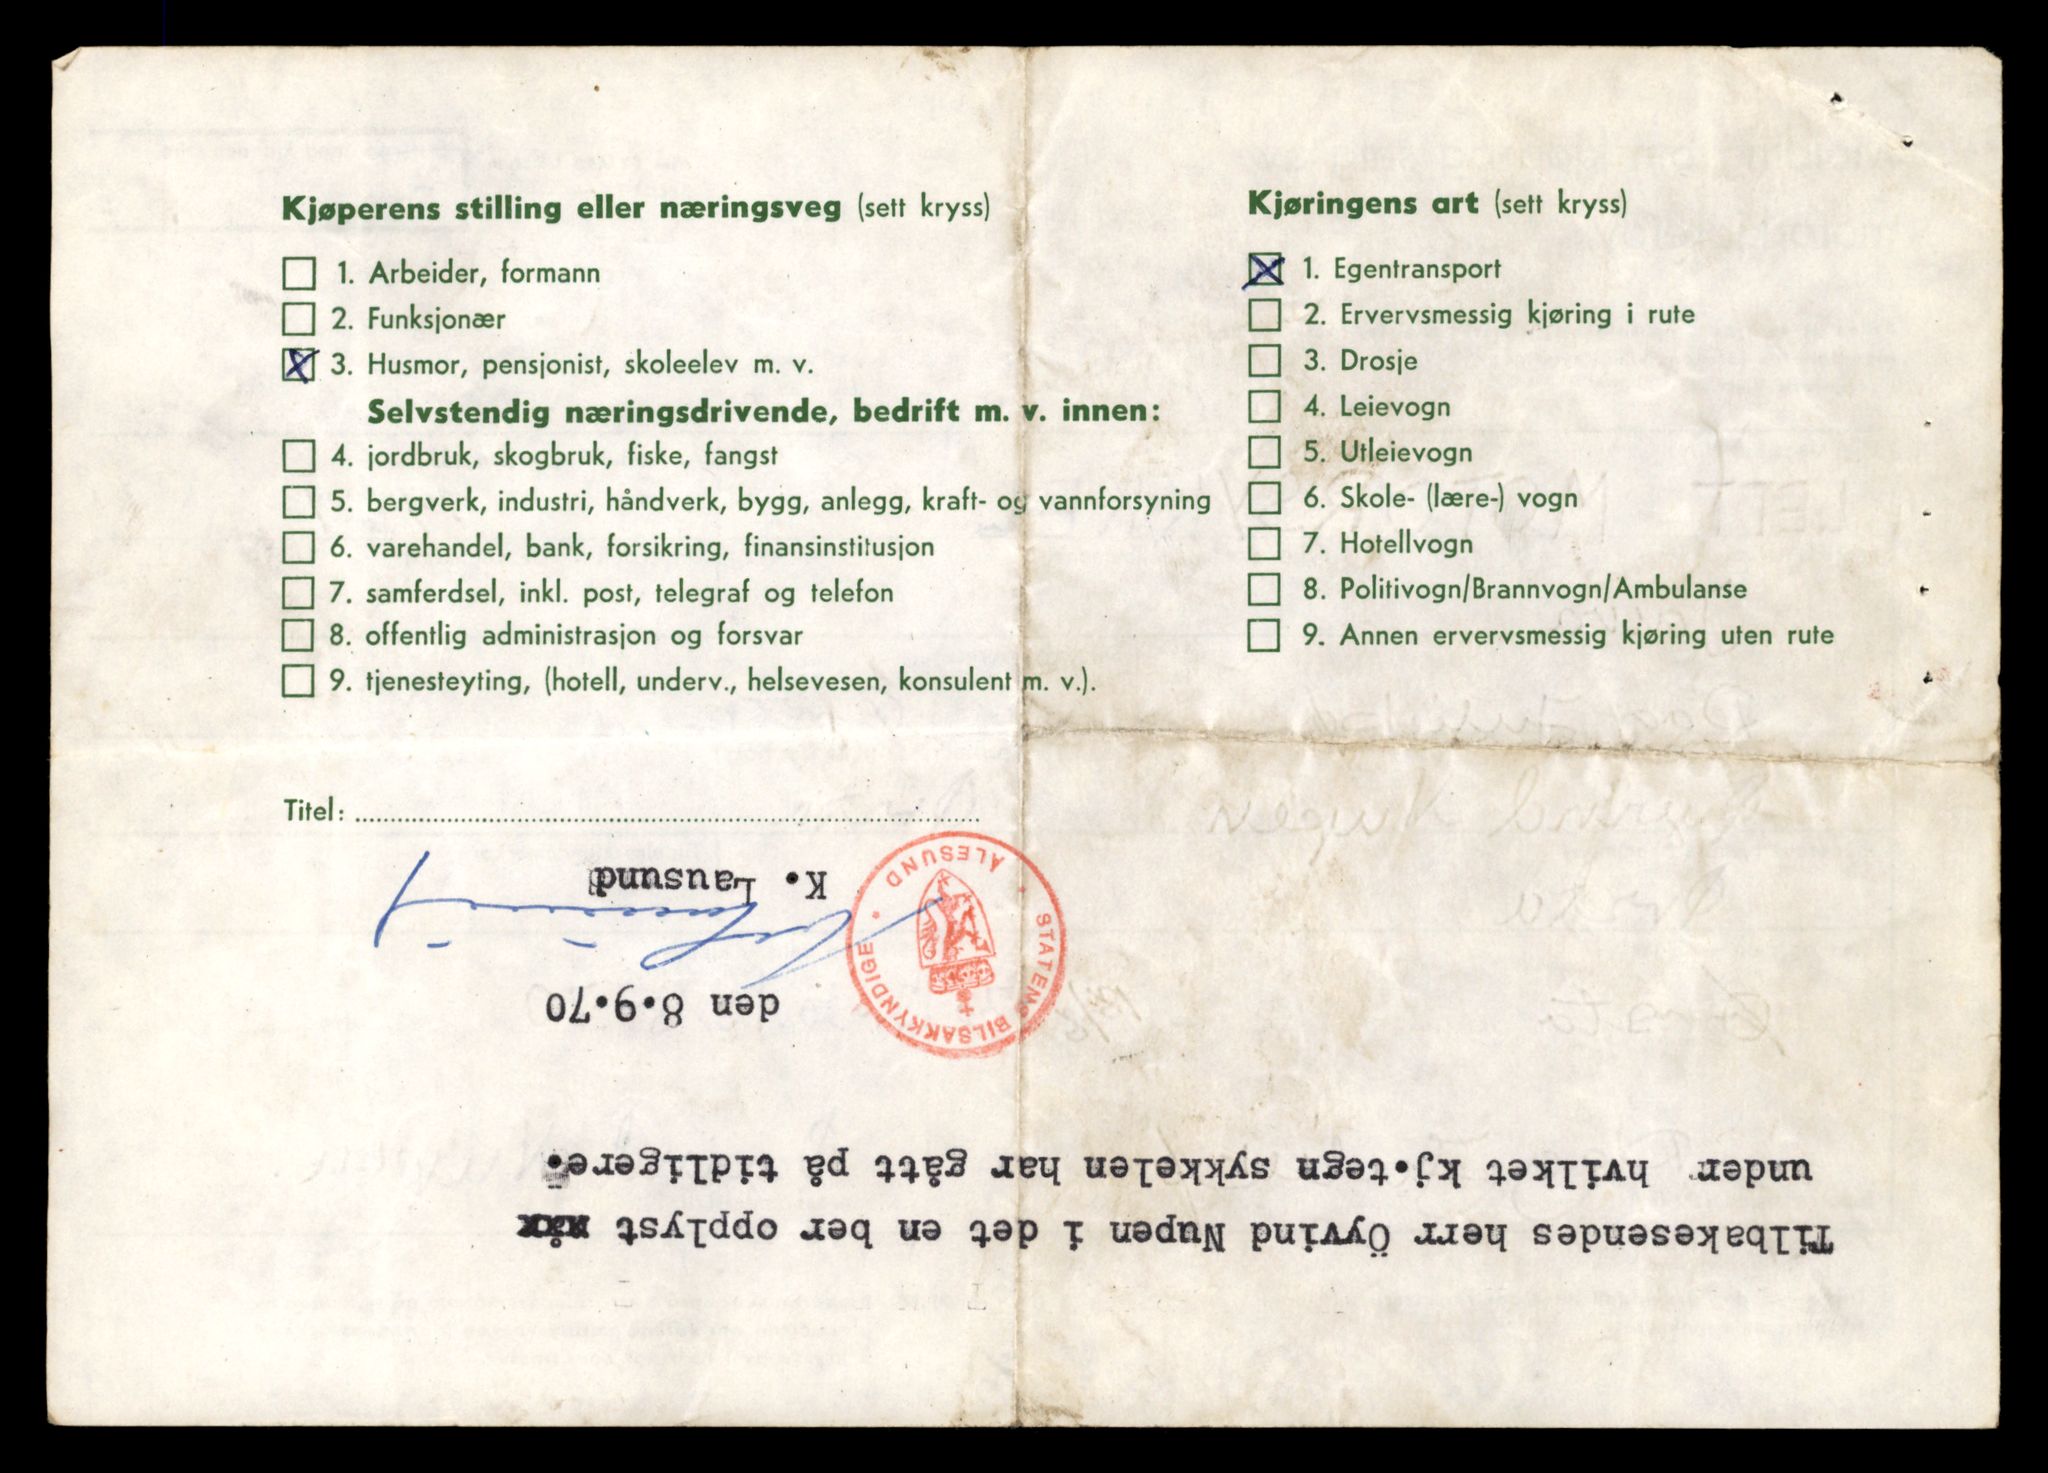 Kjøperens stilling eller næringsveg (sett kryss)
1. Arbeider, formann
2. Funksjonær
3. Husmor, pensjonist, skoleelev m. v.
Selvstendig næringsdrivende, bedrift m. v. innen:
4. jordbruk, skogbruk, fiske, fangst
5. bergverk, industri, håndverk, bygg, anlegg, kraft- og vannforsyning
6. varehandel, bank, forsikring, finansinstitusjon
7. samferdsel, inkl. post, telegraf og telefon
8. offentlig administrasjon og forsvar
9. tjenesteyting, (hotell, underv., helsevesen, konsulent m. v.).
Titel:
Kjøringens art (sett kryss)
1. Egentransport
2. Ervervsmessig kjøring i rute
3. Drosje
4. Leievogn
5. Utleievogn
6. Skole- (lære-) vogn
7. Hotellvogn
8. Politivogn/Brannvogn/Ambulanse
9. Annen ervervsmessig kjøring uten rute
Tilbakesendes herr Öyvind Nupen i det en ber opplyst
under hvilket kj.tegn sykkelen har gått på tidligere.
STATENS BILSAKKYNDIGE • ÅLESUND •
den 8.9.70
K. Lausund